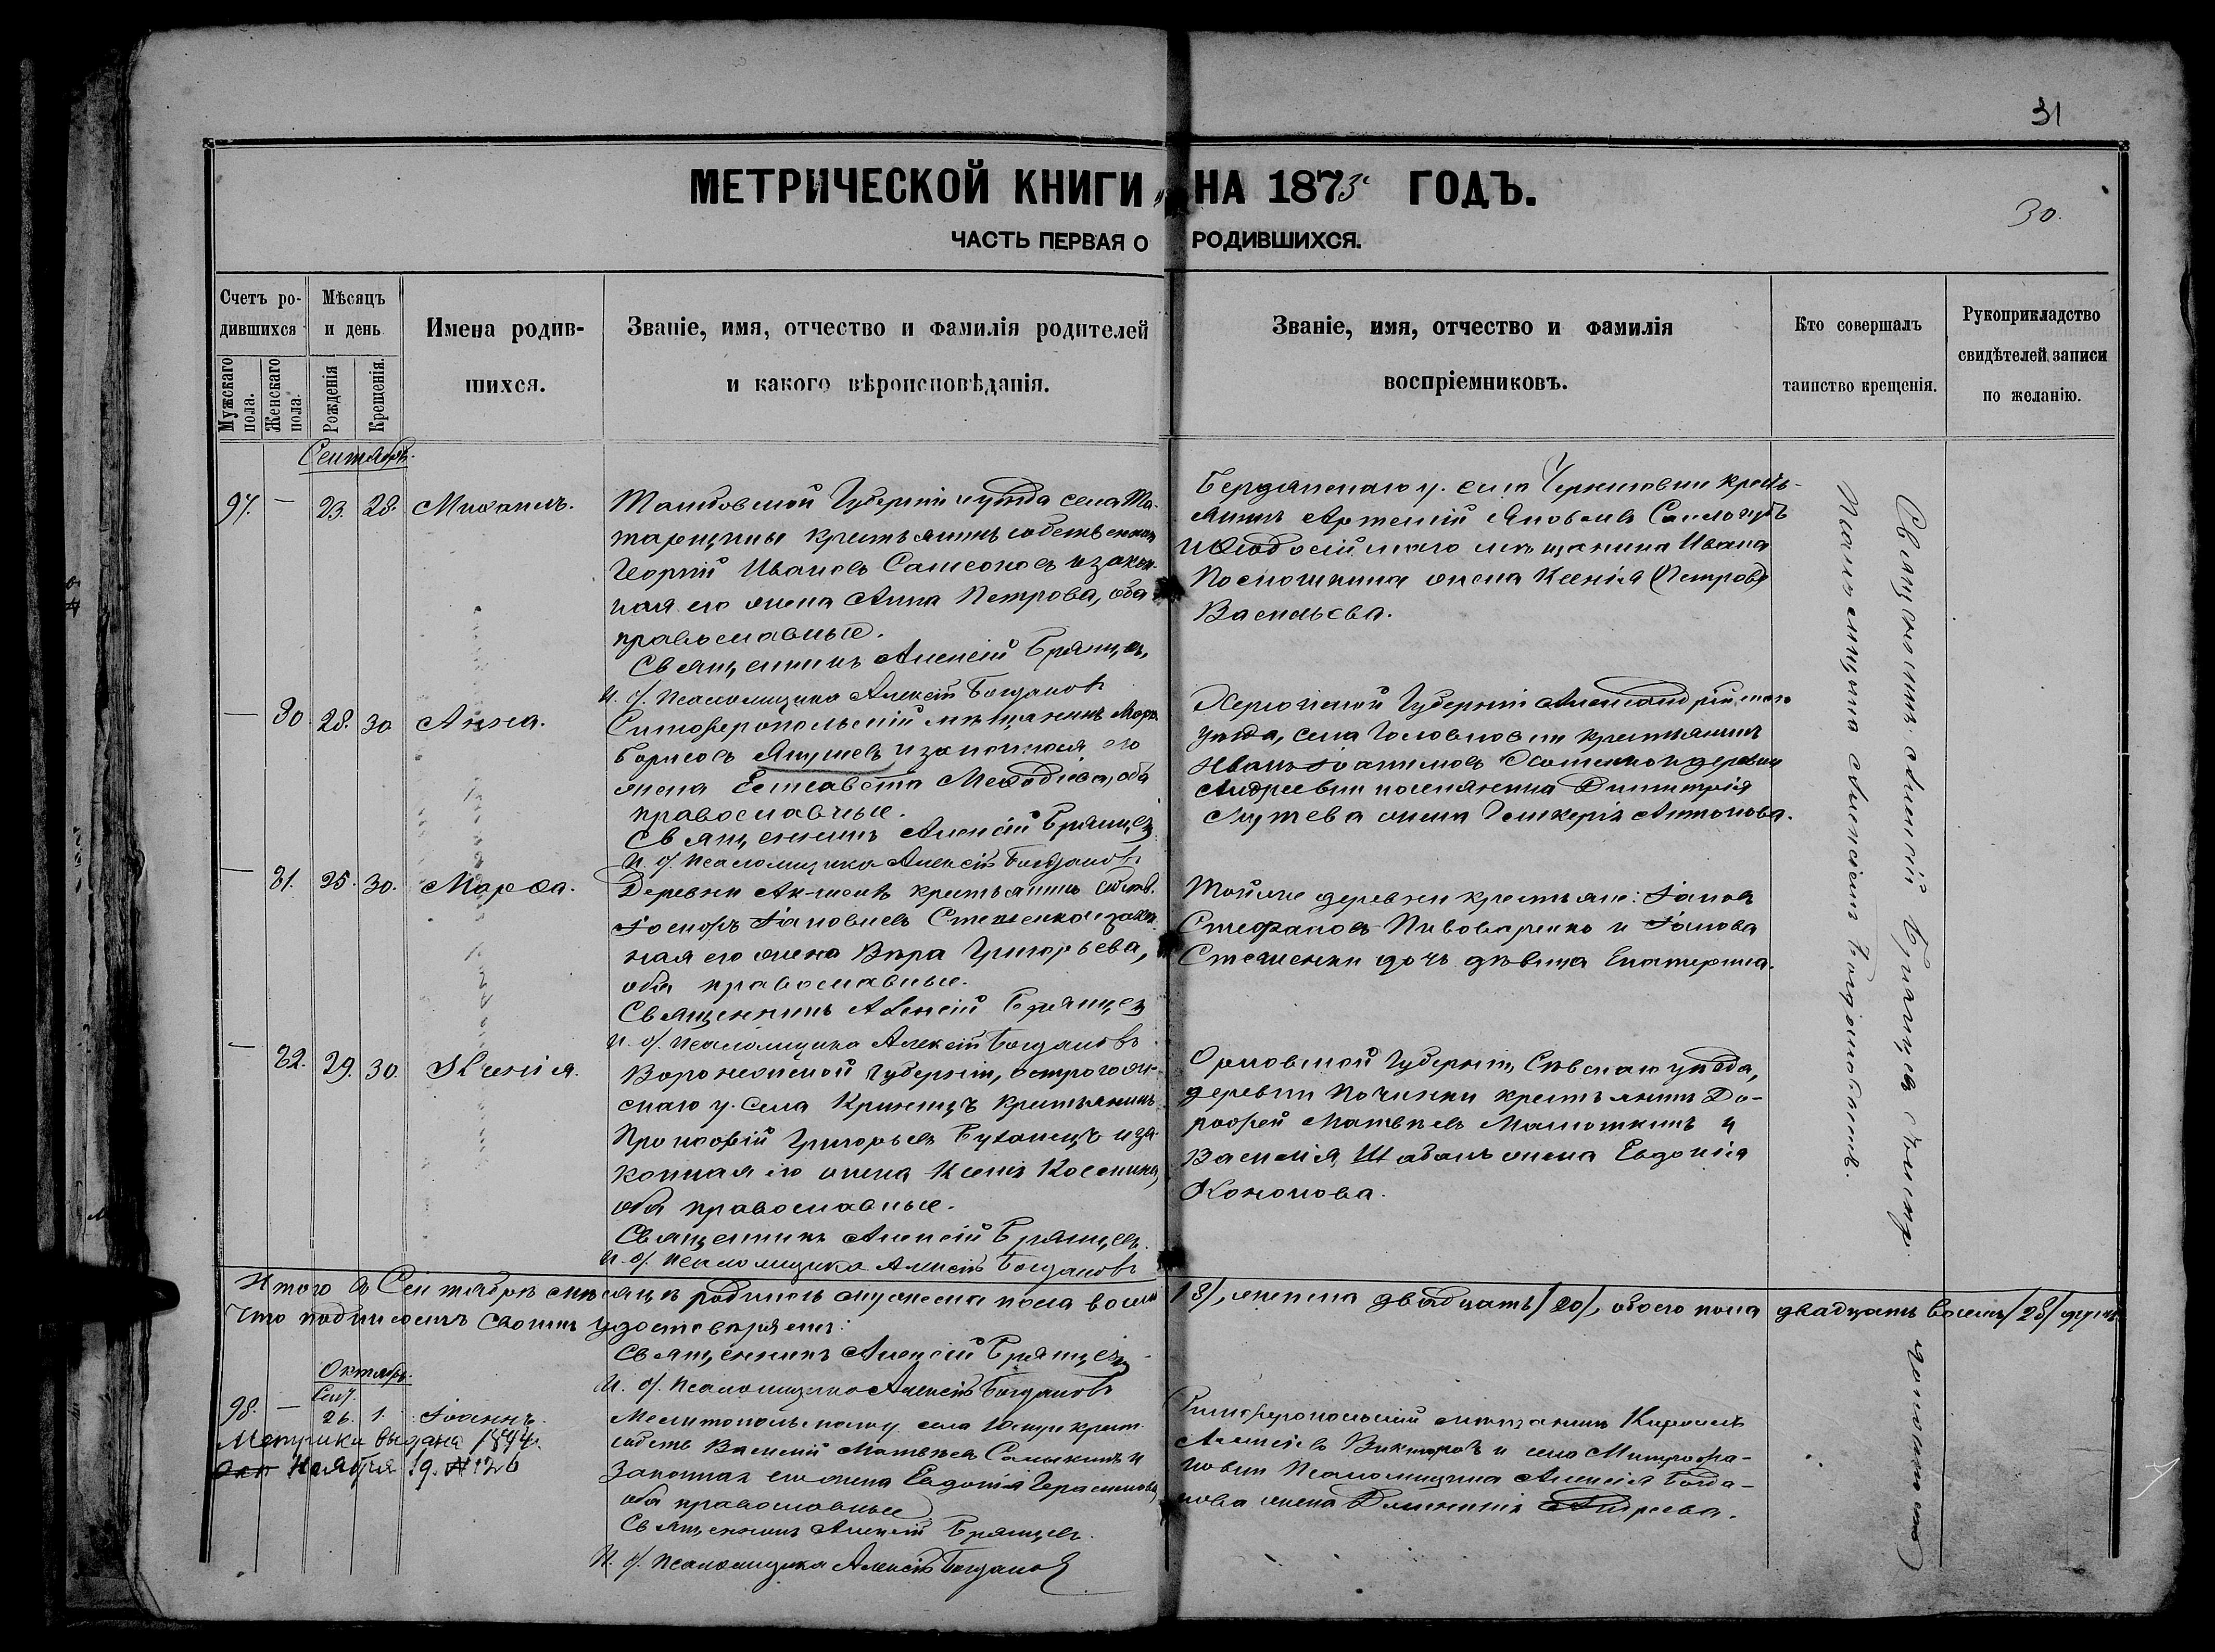 31
МЕТРИЧЕСКОЙ КНИГИ НА 1873 ГОДЪ.
30.
ЧАСТЬ ПЕРВАЯ О РОДИВШИХСЯ.
Счетъ ро-
дившихся
Мужскаго пола.
Женскаго пола.
Мѣсяцъ
и день
Рожденія
Крещенія.
Имена родив-
шихся.
Званіе, имя, отчество и фамилія родителей
и какого вѣроисповѣданія.
Званіе, имя, отчество и фамилія
воспріемниковъ.
Кто совершалъ
таинство крещенія.
Рукоприкладство
свидѣтелей записи
по желанію.
Сентябрь.
97. — 23. 28. Михаилъ.
Тамбовской Губерніи уѣзда села Та-
тарщины крестьянинъ собственникъ
Георгій Ивановъ Самсоновъ и закон-
ная его жена Анна Петрова, оба
православные.
Священникъ Алексій Брянцев
И. д. Псаломщика Алексій Богданов
Бердянскаго у. села Черниговки кресть-
янинъ Артемій Яковлевъ Самогубъ
и Ѳеодосійскаго мѣщанина Ивана
жена Ксенія (Петрова)
Васильева.
— 80. 28. 30 Анна.
Симферопольскій мѣщанинъ Маркъ
Борисовъ Якушевъ и законная его
жена Елисавета Меѳодіева, оба
православные.
Священникъ Алексій Брянцев
И. д. Псаломщика Алексій Богданов
Херсонской Губерніи Александрійскаго
уѣзда, села Головковки крестьянинъ
Иванъ Іоакимовъ и деревни
Андреевки поселянина Димитрія
жена Гликерія Антонова.
— 81. 25. 30. Марѳа.
Деревни крестьянинъ собств.
Іосифъ Іаковлевъ Стеженко и закон-
ная его жена Вѣра Григорьева,
оба православные.
Священникъ Алексій Брянцев
И. д. Псаломщика Алексій Богдановъ
Той же деревни крестьяне: Іаковъ
Стефановъ Пивоваренко и Іакова
Стеженки дочь дѣвица Екатерина.
— 82. 29. 30. Ксенія.
Воронежской Губерніи, Острогож-
скаго у. села Криницъ крестьянинъ
Прокофій Григорьевъ Буханецъ и за-
конная его жена Ксенія
оба православные.
Священникъ Алексій Брянцевъ.
И. д. Псаломщика Алексій Богдановъ
Орловской Губерніи, Сѣвскаго уѣзда,
деревни Починки крестьянинъ До-
рофей Матвѣевъ Малюткинъ и
Василія Шабанъ жена Евдокія
Кононова.
Священникъ Алексій Брянцевъ съ и. д.
Псаломщика Алексіемъ Богдановымъ.
Итого въ Сентябрѣ мѣсяцѣ родилось мужеска пола восемь /8/, женска двадцать /20/, обоего пола двадцать восемь /28/ душъ
Что подписомъ своимъ удостовѣряемъ:
Священникъ Алексій Брянцевъ
И. д. Псаломщика Алексій Богдановъ
Октябрь.
Сент.
98. — 26. 1. Іоаннъ.
Метрика выдана
Окт Ноября 19. № 126
Мелитопольскаго у. села крест.
собств. Василій Матвѣевъ Самыкинъ и
законная его жена Евдокія Герасимова
оба православные
Священникъ Алексій Брянцевъ.
И. д. Псаломщика Алексій Богданов
Симферопольскій мѣщанинъ Кириллъ
Алексіевъ Викторовъ и села Митрофа-
новки Псаломщика Алексія Богда-
нова жена Андреева.